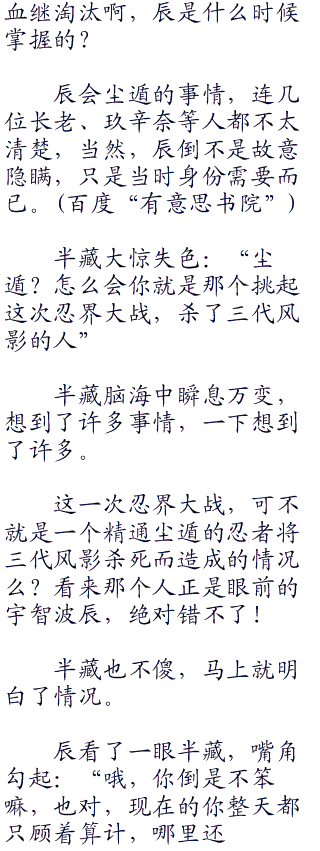 血继淘汰啊，辰是什么时候
掌握的？
辰会尘遁的事情，连几
位长老、玖辛奈等人都不太
清楚，当然，辰倒不是故意
隐瞒，只是当时身份需要而
已。(百度“有意思书院”)
半藏大惊失色：“尘
遁？怎么会你就是那个挑起
这次忍界大战，杀了三代风
影的人”
半藏脑海中瞬息万变，
想到了许多事情，一下想到
了许多。
这一次忍界大战，可不
就是一个精通尘遁的忍者将
三代风影杀死而造成的情况
么？看来那个人正是眼前的
宇智波辰，绝对错不了！
半藏也不傻，马上就明
白了情况。
辰看了一眼半藏，嘴角
勾起：“哦，你倒是不笨
嘛，也对，现在的你整天都
只顾着算计，哪里还